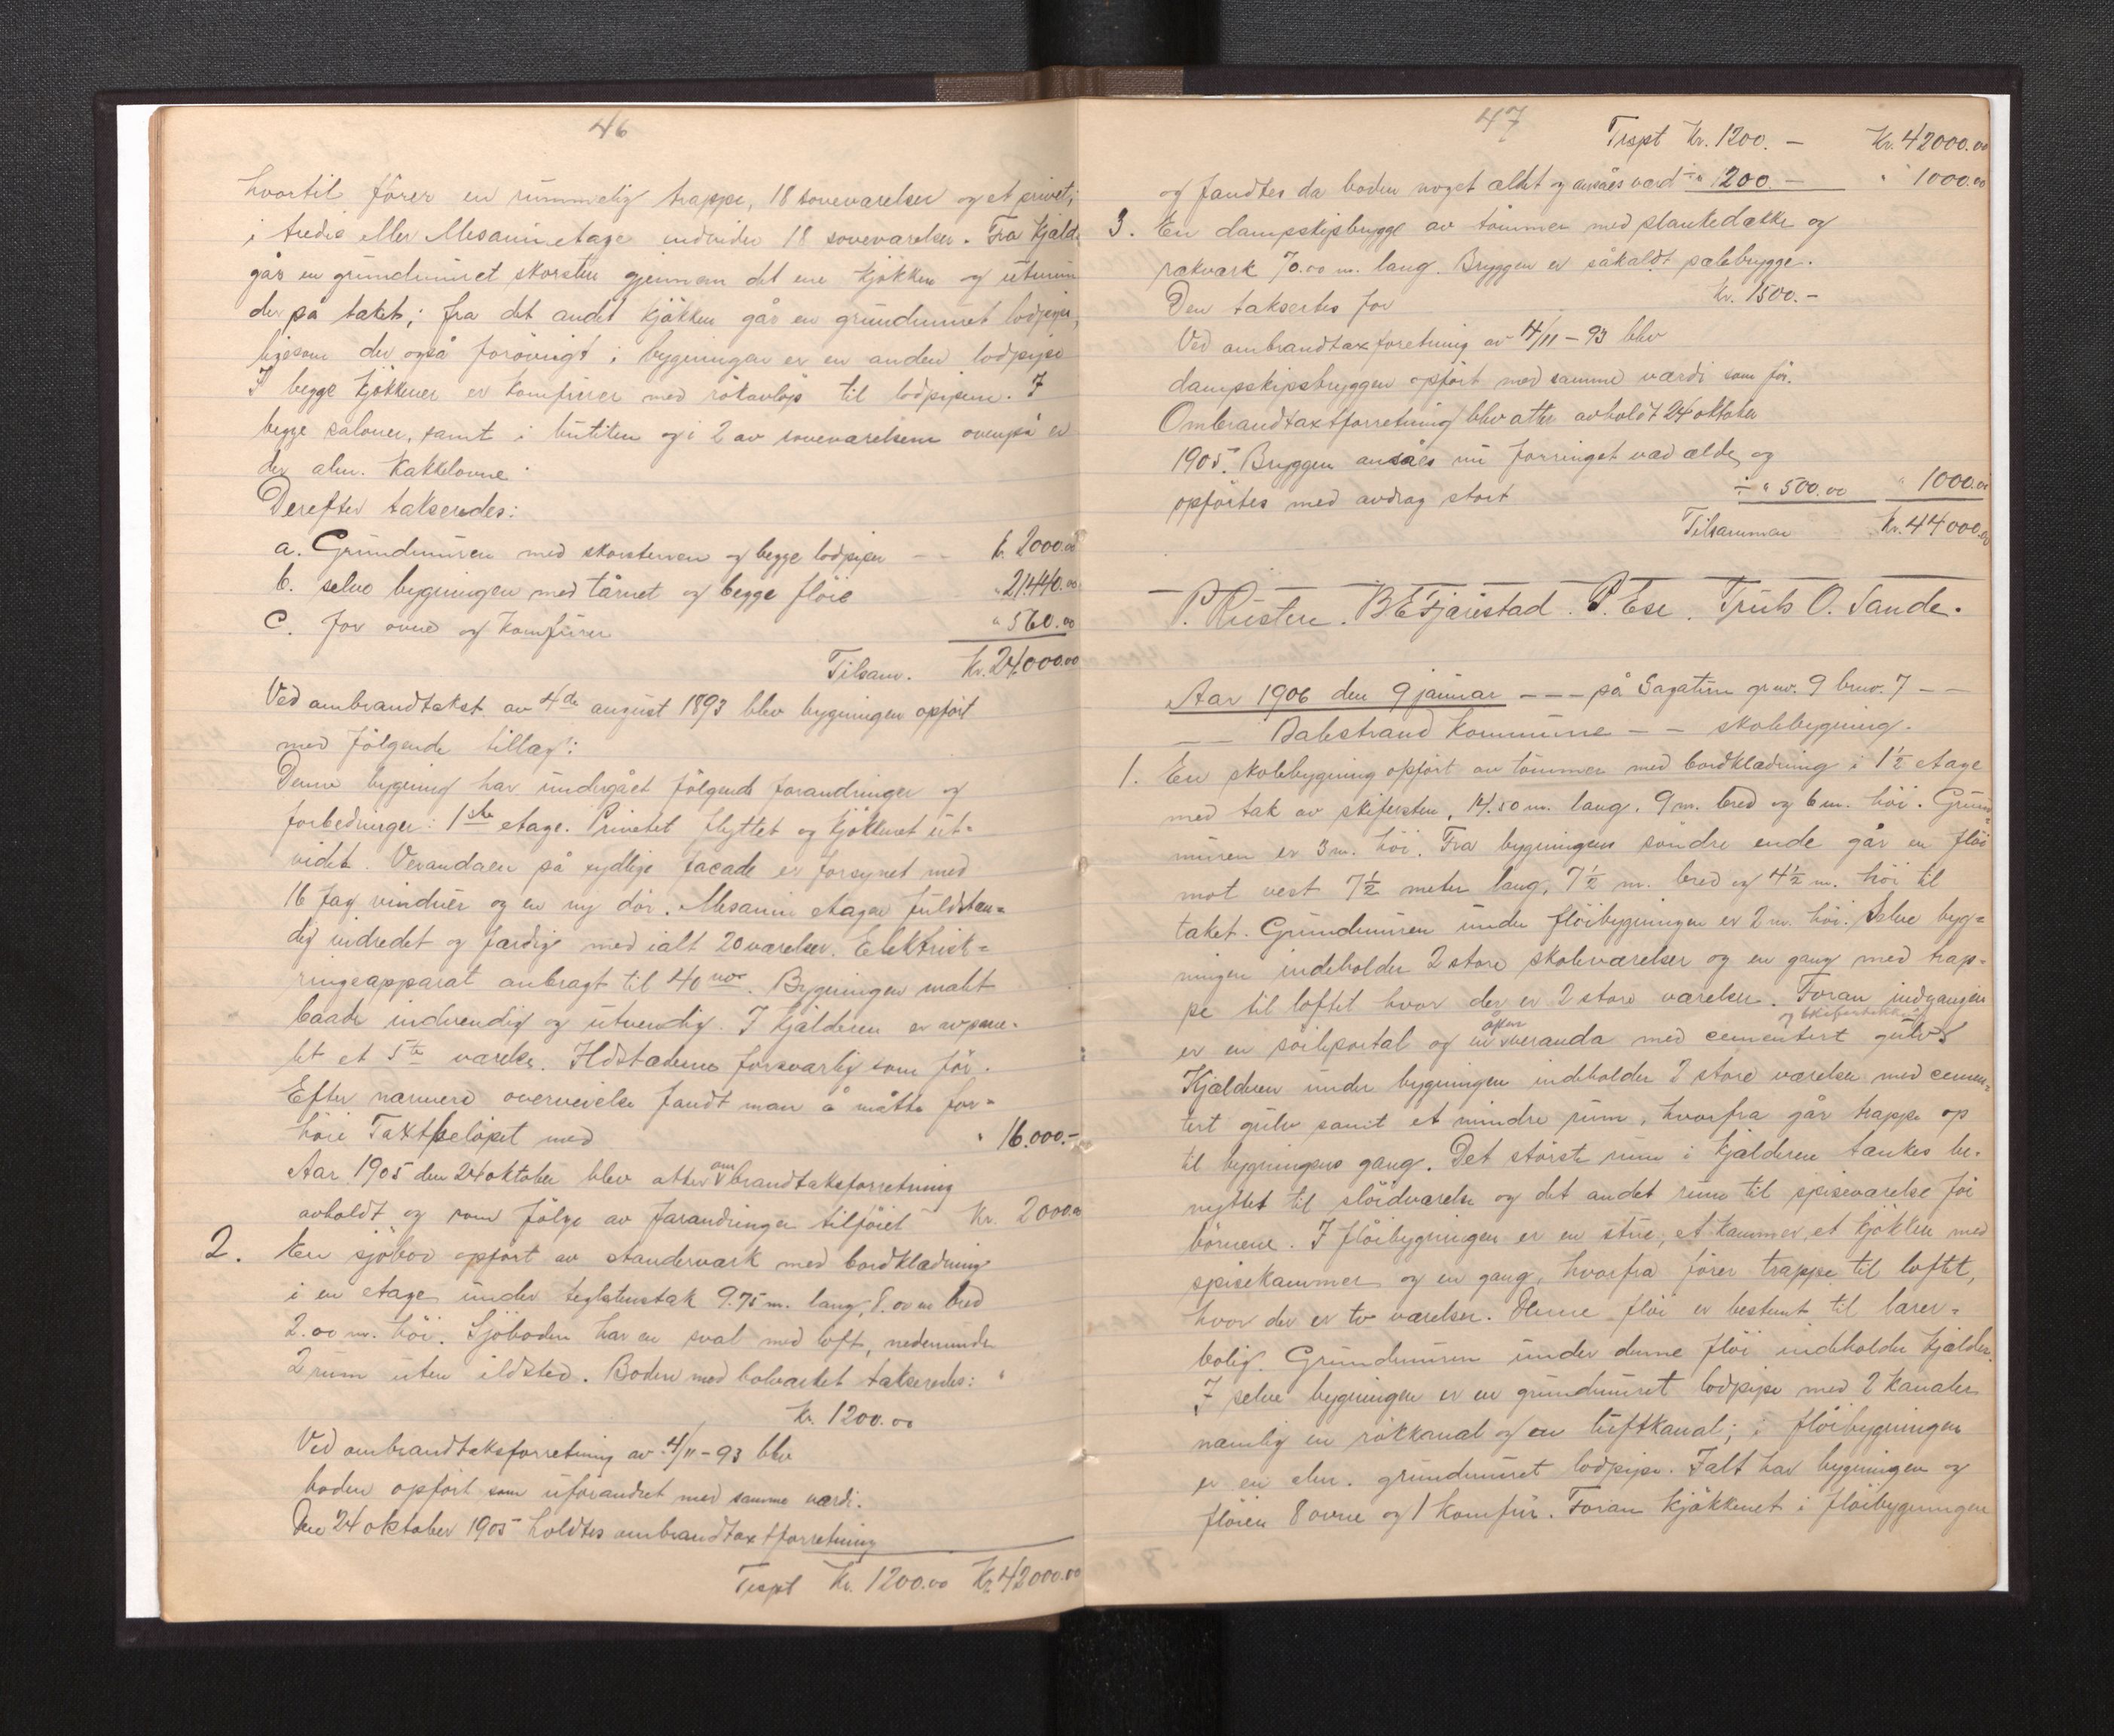 46
hvortil fører en rummelig trappe, 18 soveværelser og et privet;
i tredie eller Mesaninetage indvider 18 soveværelser. Fra kjæld.
går en grundmuret skorsten gjennem det ene kjøkken og utmun
der på taket; fra det andet kjøkken går en grundmuret lodpipe,
ligesom der også forøvrigt i bygningen er en anden lodpipe
I begge kjøkkener er komfurer med rökavløp til lodpipene. I
begge saloner, samt i butiken og i 2 av soveværelsene ovenpå er
der alm. kakkelovne.
Derefter takseredes:
a. Grundmuren med skorstenen og begge lodpiper — kr. 2000.00
b. selve bygningen med tårnet og begge fløie " 21440.00
c. for ovne og komfurer " 560.00
Tilsam. Kr. 24000.00
Ved ombrandtakst av 4de august 1893 blev bygningen opført
med følgende tillæg:
Denne bygning har undergået følgende forandringer og
forbedringer: 1ste etage. Privetet flyttet og kjøkkenet ut-
videt. Verandaen på sydlige facade er forsynet med
16 fag vinduer og en ny dør. Mesanin etagen fuldstæn-
dig indredet og færdig med ialt 20 værelser. Elektrisk-
ringeapparat anbragt til 40 nor. Bygningen malt
baade indvendig og utvendig. I kjælderen er avpane-
let et 5te værelse. Ildstederne forsvarlig som før.
Efter nærmere overveielse fandt man å måtte for-
høie Taxtbeløpet med " 16.000.-
Aar 1905 den 24 oktober blev atter om brandtaksforretning
avholdt og som følge av forandringer tilføiet Kr. 2000.00
2. En sjøbod opført av standerværk med bordklædning
i en etage under teglstenstak 9.75 m. lang, 8.00 m bred
2.00 m. høi. Sjøboden har en sval med loft, nedenunder
2 rum uten ildsted. Boden med bolværket takseredes:
Kr. 1200.00
Ved ombrandtaksforretning av 4/11-93 blev
boden opført som uforandret med samme værdi.
Den 24 oktober 1905 holdtes ombrandtaxtforretning
Trspt Kr. 1200.00 Kr. 42000.00
47
Trspt Kr. 1200.— Kr. 42000.00
og fandtes da boden noget ældet og ansåes værd ÷ " 200.— " 1000.00
3. En dampskipsbrygge av tømmer med plankedække og
rækværk 70.00 m. lang. Bryggen er såkaldt pælebrygge.
Den taksertes for Kr. 1500.—
Ved ombrandtaxforetning av 4/11-93 blev
dampskipsbryggen opført med samme værdi som før.
Ombrandtaxtforretning blev atter avholdt 24 oktober
1905. Bryggen ansåes nu forringet ved ælde, og
opførtes med avdrag stort ÷ " 500.00 " 1000.00
Tilsammen Kr. 44000.00
P. Risten. B E Fjærestad. P. Ese. Truls O. Sande.
Aar 1906 den 9 januar — — — på Sagatun grnr. 9 brnr. 7 — —
— — Balestrand Kommune — — skolebygning.
1. En skolebygning opført av tømmer med bordklædning i 1½ etage
med tak av skifersten, 14.50 m. lang, 9 m. bred og 6 m. høi. Grund-
muren er 3 m. høi. Fra bygningens søndre ende går en fløi
mot vest 7½ meter lang, 7½ m. bred og 4½ m. høi til
taket. Grundmuren under fløibygningen er 2 m. høi. Selve byg-
ningen indeholder 2 store skoleværelser og en gang med trap-
pe til loftet hvor der er 2 store værelser. Foran indgangen
er en søileportal og en åpen veranda med cementert gulv og skifertekking
Kjælderen under bygningen indeholder 2 store værelser med cemen-
tert gulv samt et mindre rum, hvorfra går trappe op
til bygningens gang. Det største rum i kjælderen tænkes be-
nyttet til sløidværelse og det andet rum til spiseværelse for
børnene. I fløibygningen er en stue, et kammer, et kjøkken med
spisekammer og en gang, hvorfra fører trappe til loftet,
hvor der er to værelser. Denne fløi er bestemt til lærer-
bolig. Grundmuren under denne fløi indeholder kjælder.
I selve bygningen er en grundmuret lodpipe med 2 kanaler
nemlig en rökkanal og en luftkanal; i fløibygningen
er en alm. grundmuret lodpipe. Ialt har bygningen og
fløien 8 ovne og 1 komfur. Foran kjøkkenet i fløibygningen